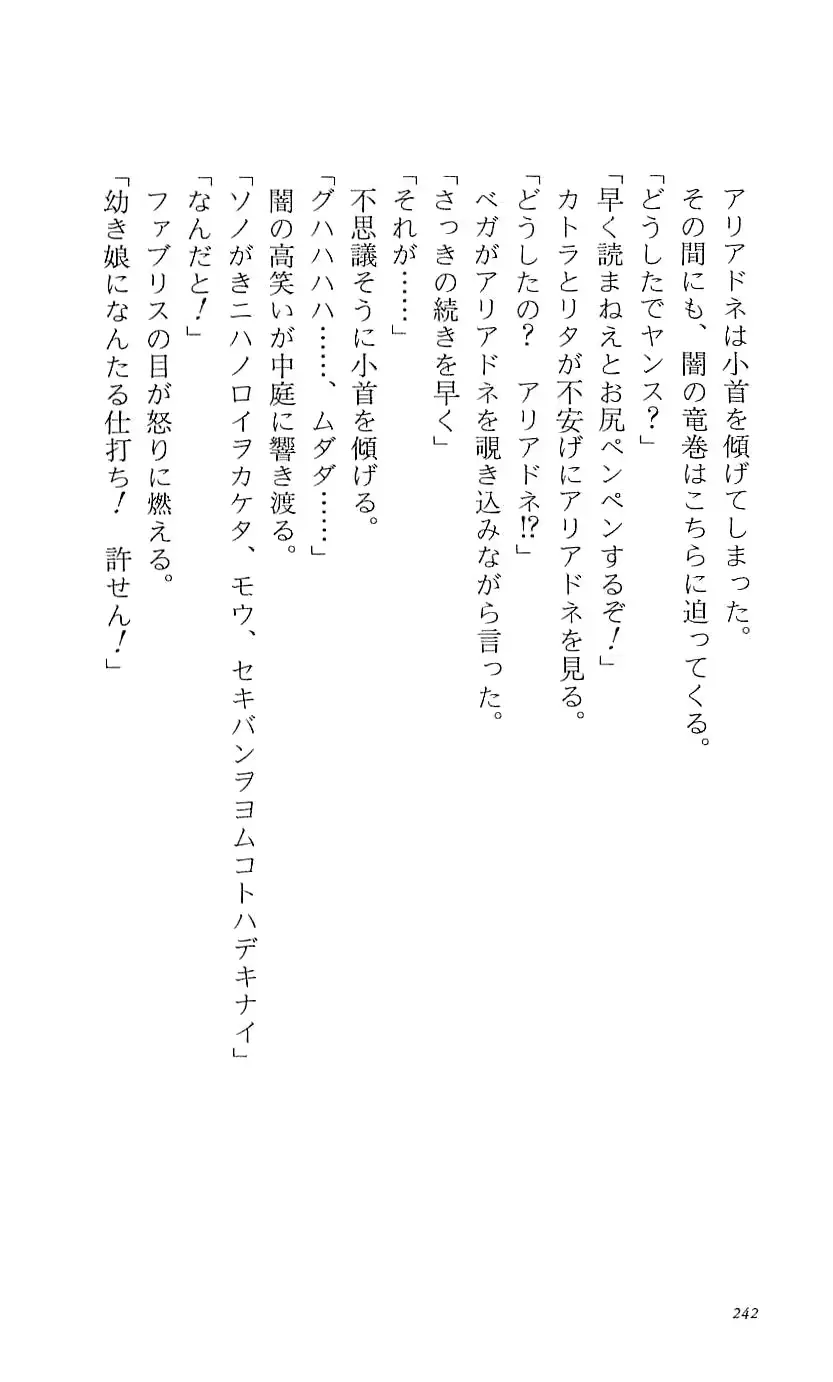 アリアドネは小首を傾げてしまった。
　その間にも、闇の竜巻はこちらに迫ってくる。
「どうしたでヤンス？」
「早く読まねえとお尻ペンペンするぞ！」
　カトラとリタが不安げにアリアドネを見る。
「どうしたの？　アリアドネ⁉」
　ベガがアリアドネを覗き込みながら言った。
「さっきの続きを早く」
「それが……」
　不思議そうに小首を傾げる。
「グハハハハ……、ムダダ……」
　闇の高笑いが中庭に響き渡る。
「ソノがきニハノロイヲカケタ、モウ、セキバンヲヨムコトハデキナイ」
「なんだと！」
　ファブリスの目が怒りに燃える。
「幼き娘になんたる仕打ち！　許せん！」
242